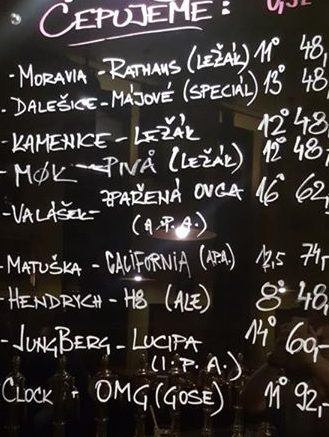 ČEPUJEME:
- MORAVIA - RATHAUS (LEŽÁK) 11° 48,
- DALEŠICE - MÁJOVÉ (SPECIÁL) 13° 48,
- KAMENICE - LEŽÁK 12° 48,-
- MØK - PIVÁ (LEŽÁK) 12° 48,-
- VALÁŠEK - ZPAŘENÁ OVCA 16° 62,
(A.P.A.)
- MATUŠKA - CALIFORNIA (APA.) 12,5 74,-
- HENDRYCH - H8 (ALE) 8° 48,
- JUNGBERG - LUCIPA 14° 60,-
(I.P.A.)
CLOCK - OMG (GOSE) 11° 92,-